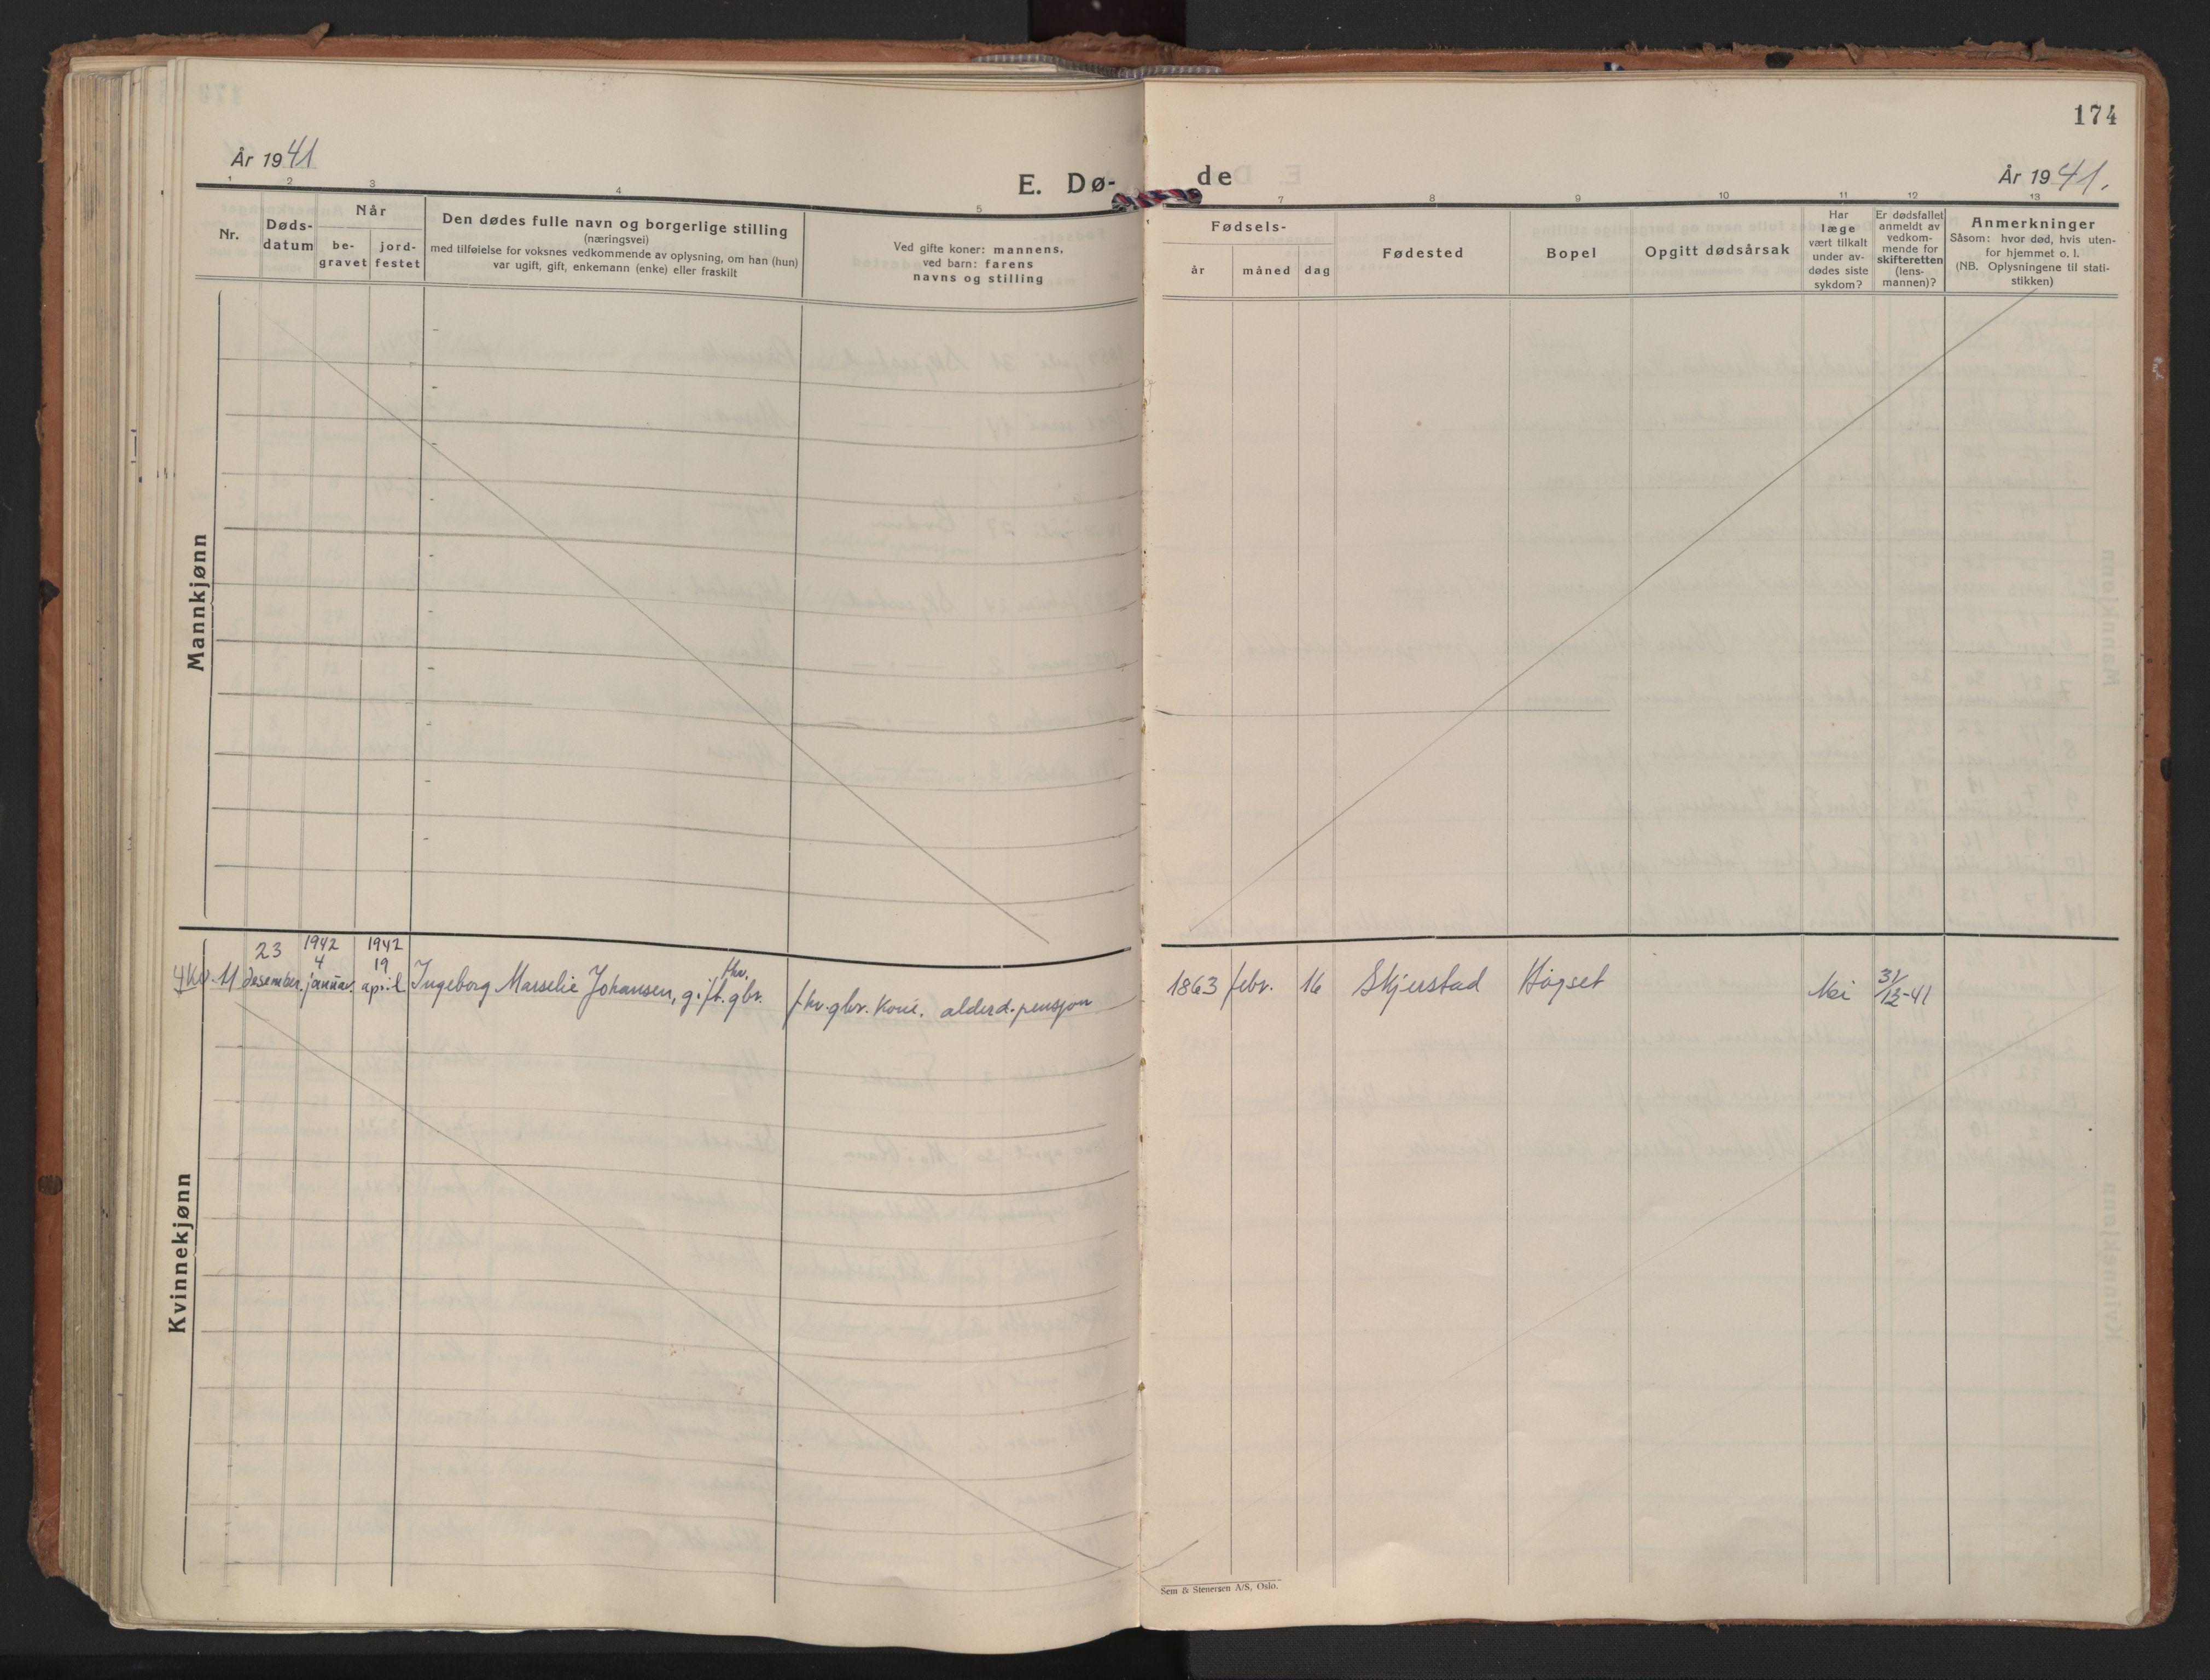 174
År 1941
År 1941.
E. Dø-
de
1 2 3 4 5
7 8 9 10 11 12 13
Nr.
Døds-
datum
Når
be-
gravet
jord-
festet
Den dødes fulle navn og borgerlige stilling
(næringsvei)
med tilføielse for voksnes vedkommende av oplysning, om han (hun)
var ugift, gift, enkemann (enke) eller fraskilt
Ved gifte koner: mannens,
ved barn: farens
navns og stilling
Fødsels-
år
måned
dag
Fødested
Bopel
Opgitt dødsårsak
Har
læge
vært tilkalt
under av-
dødes siste
sykdom?
Er dødsfallet
anmeldt av
vedkom-
mende for
skifteretten
(lens-
mannen)?
Anmerkninger
Såsom: hvor død, hvis uten-
for hjemmet o. l.
(NB. Oplysningene til stati-
stikken)
Mannkjønn
23 1942 1942
4 19
11 desember. januar. april Ingeborg Marselie Johansen, gift. fhv. gbr. fhv. gbr. kone. alderd. pensjon 1863 febr. 16 Skjerstad Høgset Nei 31/12-41
Kvinnekjønn
Sem & Stenersen A/S, Oslo.